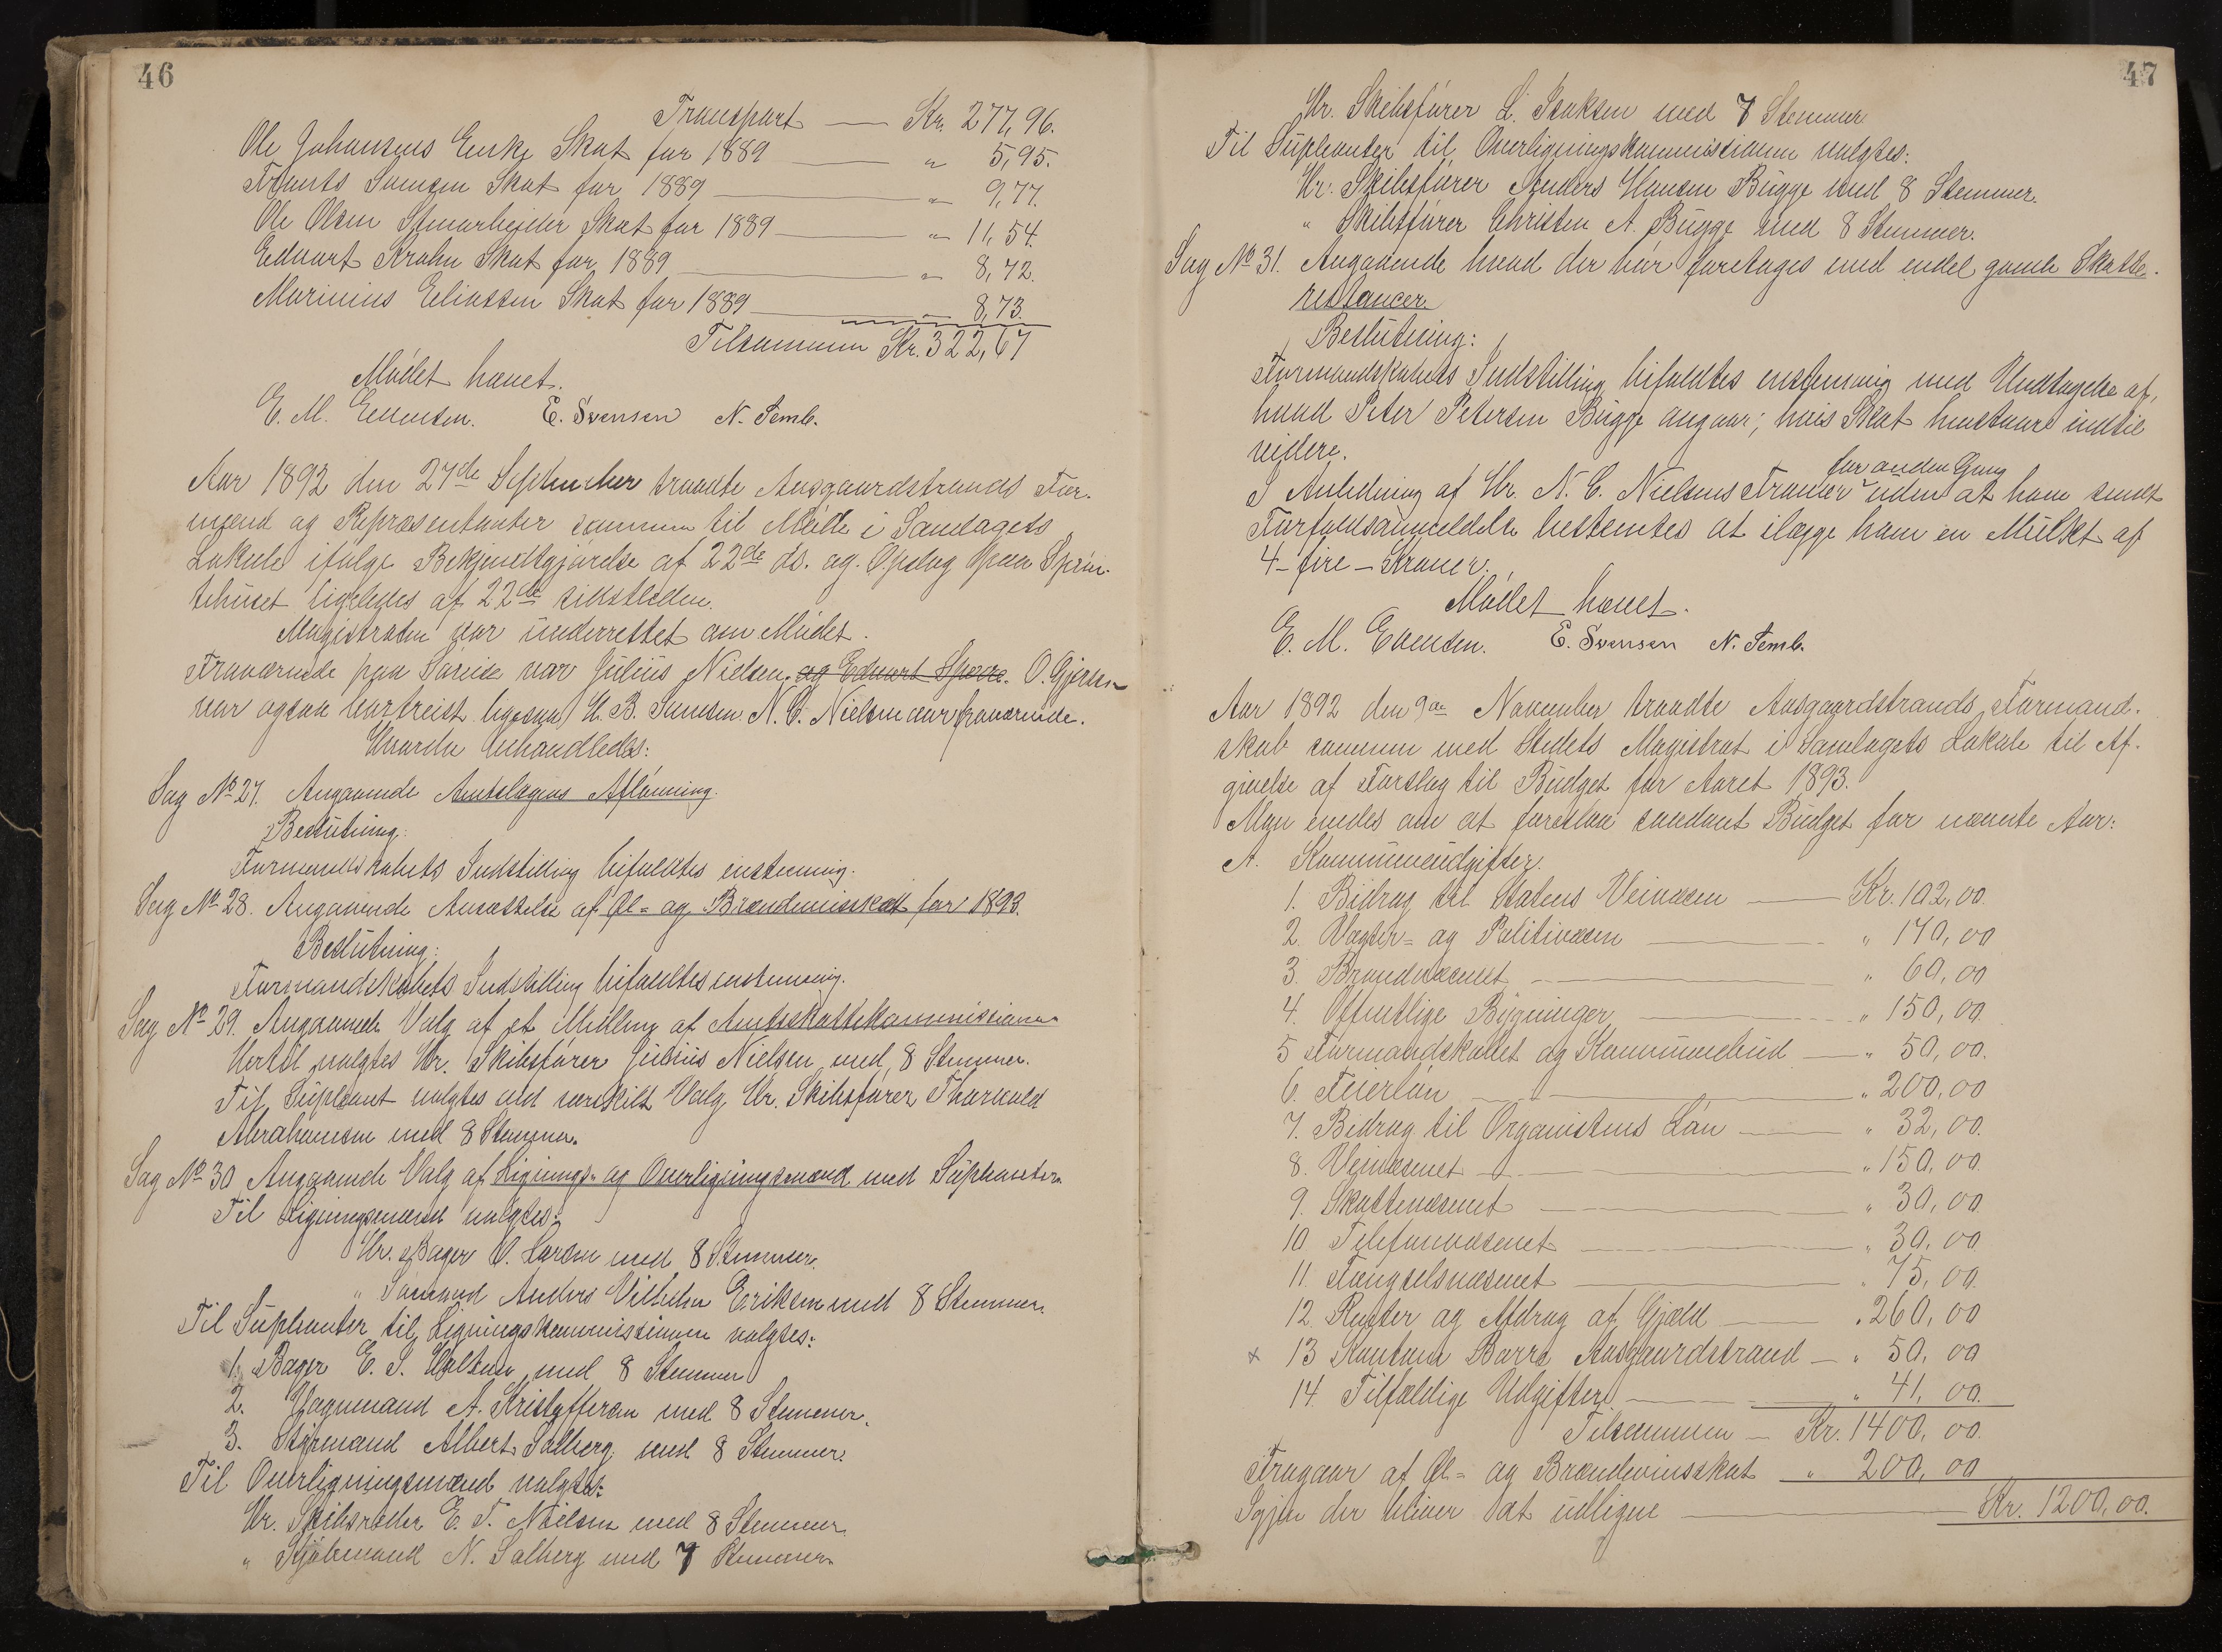 46
Transport — Kr. 277,96.
Ole Johansens Enke Skat for 1889 — " 5,95.
Frants Svensen Skat for 1889 — " 9,77.
Ole Olsen Stenarbeider Skat for 1889 — " 11,54.
Edvart Krohn Skat for 1889 — " 8,72.
Marinius Eliassen Skat for 1889 — " 8,73.
Tilsammen Kr. 322,67
Mødet hævet.
E. M. Evensen. E. Svensen N. Semb.
Aar 1892 den 27de September traadte Aasgaardstrands For-
mænd og Repræsentanter sammen til Møde i Samlagets
Lokale ifølge Bekjendtgjørelse af 22de ds. og Opslag paa Sprøi-
tehuset ligeledes af 22de sidstleden.
Magistraten var underrettet om Mødet.
Fraværende paa Søreise var Julius Nielsen. og Edvart O. Gjersen
var ogsaa bortreist ligesaa H. B. Svensen. N. C. Nielsen var fraværende.
Hvorda behandledes:
Sag No 27. Angaaende Amtslægens Aflønning.
Beslutning:
Formandskabets Indstilling bifaldtes enstemmig.
Sag No 28. Angaaende Ansættelse af Øl- og Brændevinsskat for 1893.
Beslutning:
Formandskabets Indstilling bifaldtes enstemmig.
Sag No 29. Angaaende Valg af et Medlem af Amtsskattekommissionen
Hertil valgtes Hr. Skibsfører Julius Nielsen med 8 Stemmer.
Til Supleant valgtes ved særskilt Valg Hr. Skibsfører Thorvald
Abrahamsen med 8 Stemmer.
Sag No 30 Angaaende Valg af Lignings- og Overligningsmænd med Supleanter
Til Ligningsmænd valgtes:
Hr. Bager O. Larsen med 8 Stemmer.
" Sømand Anders Vilhelm Eriksen med 8 Stemmer.
Til Supleanter til Ligningskommissionen valgtes:
1. Bager E. S. Holtan med 8 Stemmer
2. Vognmand A. Kristoffersen med 8 Stemmer.
3. Styrmand Albert Solberg med 8 Stemmer.
Til Overligningsmænd valgtes:
Hr. Skibsreder E. T. Nielsen med 8 Stemmer.
" Kjøbmand N. Solberg med 7 Stemmer.
47
Hr. Skibsfører L. Isaksen med 7 Stemmer
Til Supleanter til Overligningskommissionen valgtes:
Hr. Skibsfører Anders Hansen Bugge med 8 Stemmer.
" Skibsfører Christen A. Bugge med 8 Stemmer.
Sag No 31. Angaaende hvad der bør foretages med endel gamle Skatte-
restancer.
Beslutning:
Formandskabets Indstilling bifaldtes enstemmig med Undtagelse af,
hvad Peter Petersen Bugge angaar; hvis Skat henstaar indtil
videre.
for anden Gang
I Anledning af Hr. N. C. Nielsens Fravær uden at have sendt
Forfaldsanmeldelse bestemtes at ilægge ham en Mulkt af
4 - fire - Kroner.
Mødet hævet.
E. M. Evensen. E. Svensen N. Semb.
Aar 1892 den 9de November traadte Aasgaardstrands Formand-
skab sammen med Stedets Magistrat i Samlagets Lokale til Af-
givelse af Forslag til Budget for Aaret 1893.
Man enedes om at foreslaa saadant Budget for nævnte Aar:
A. Kommuneudgifter.
1. Bidrag til Statens Veivæsen — Kr. 102,00.
2. Vægter- og Politivæsen — " 170,00
3. Brandvæsenet — " 60,00
4. Offentlige Bygninger — " 150,00
5 Formandskabet og Kommunebud — " 50,00.
6. Feierløn — " 200,00
7. Bidrag til Organistens Løn — " 32,00.
8. Veivæsenet — " 150,00.
9. Skattevæsenet — " 30,00
10 Telefonvæsenet — " 30,00
11. Fængselsvæsenet — " 75,00.
12. Renter og Afdrag af Gjæld — " 260,00
x 13 Borre Aasgaardstrand — " 50,00
14. Tilfældige Udgifter — " 41,00.
Tilsammen — Kr. 1400,00.
Fragaar af Øl- og Brændevinsskat — " 200,00
Igjen der bliver at udligne — Kr. 1200,00.